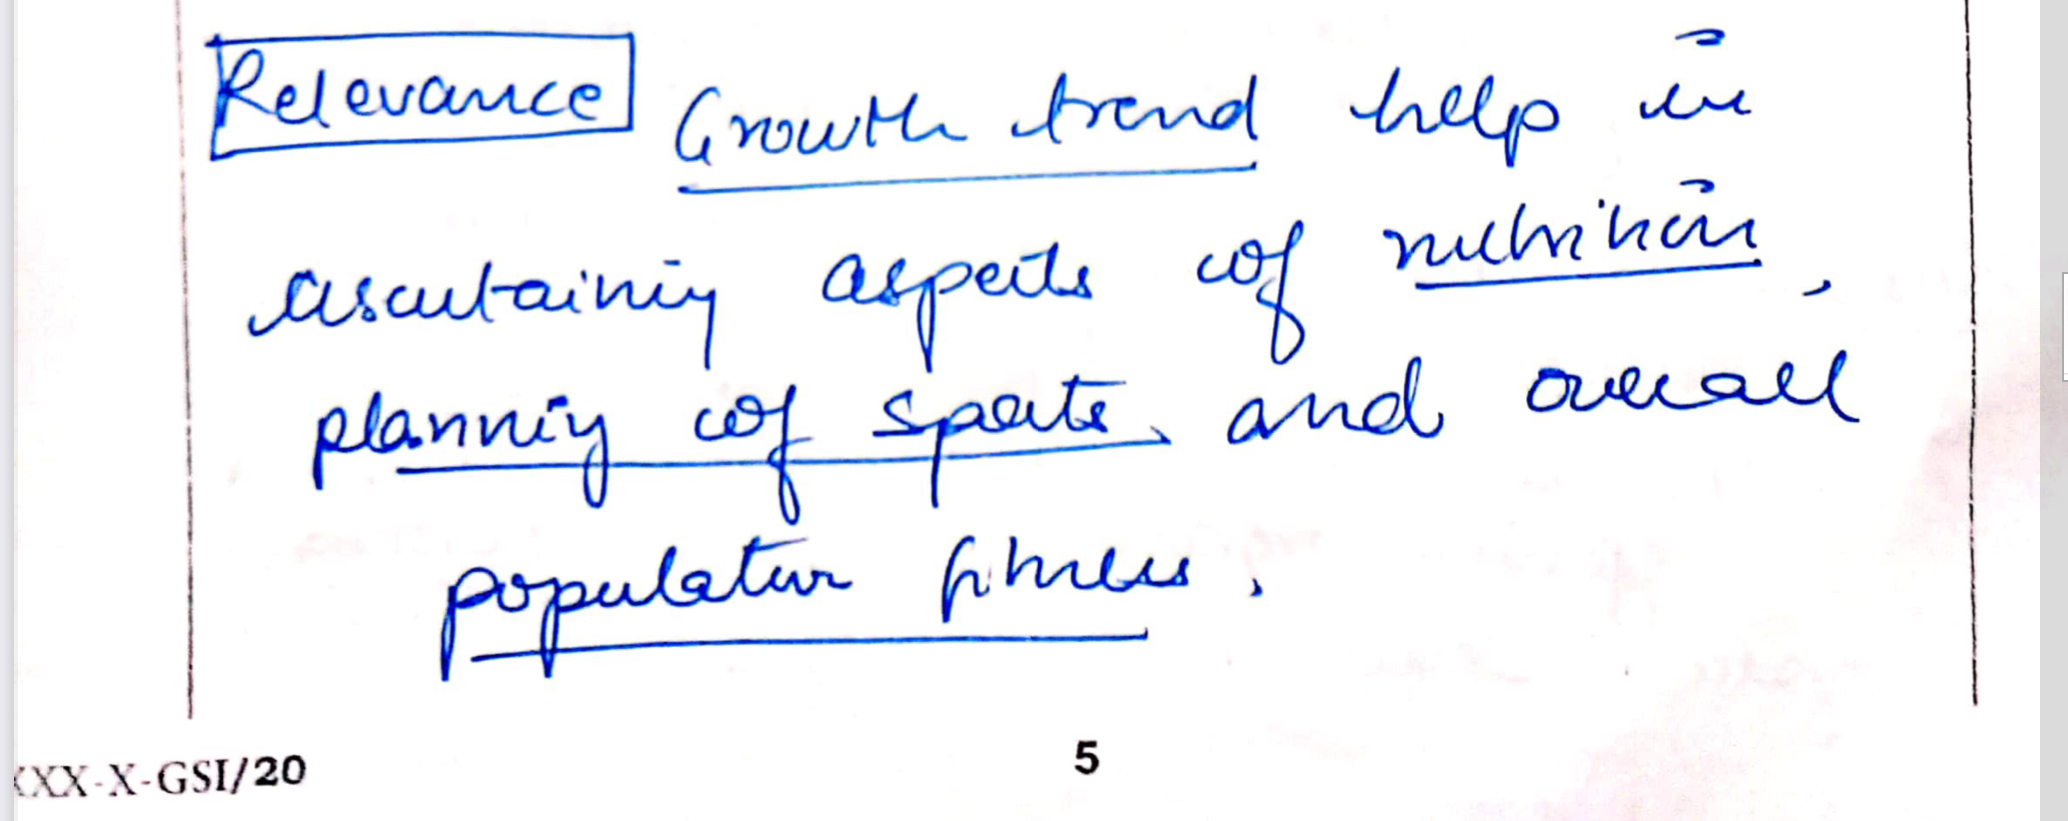 Relevance Growth trend help in
ascertaining aspects of nutrition,
planning of sports, and overall
population fitness.
XXX-X-GSI/20
5